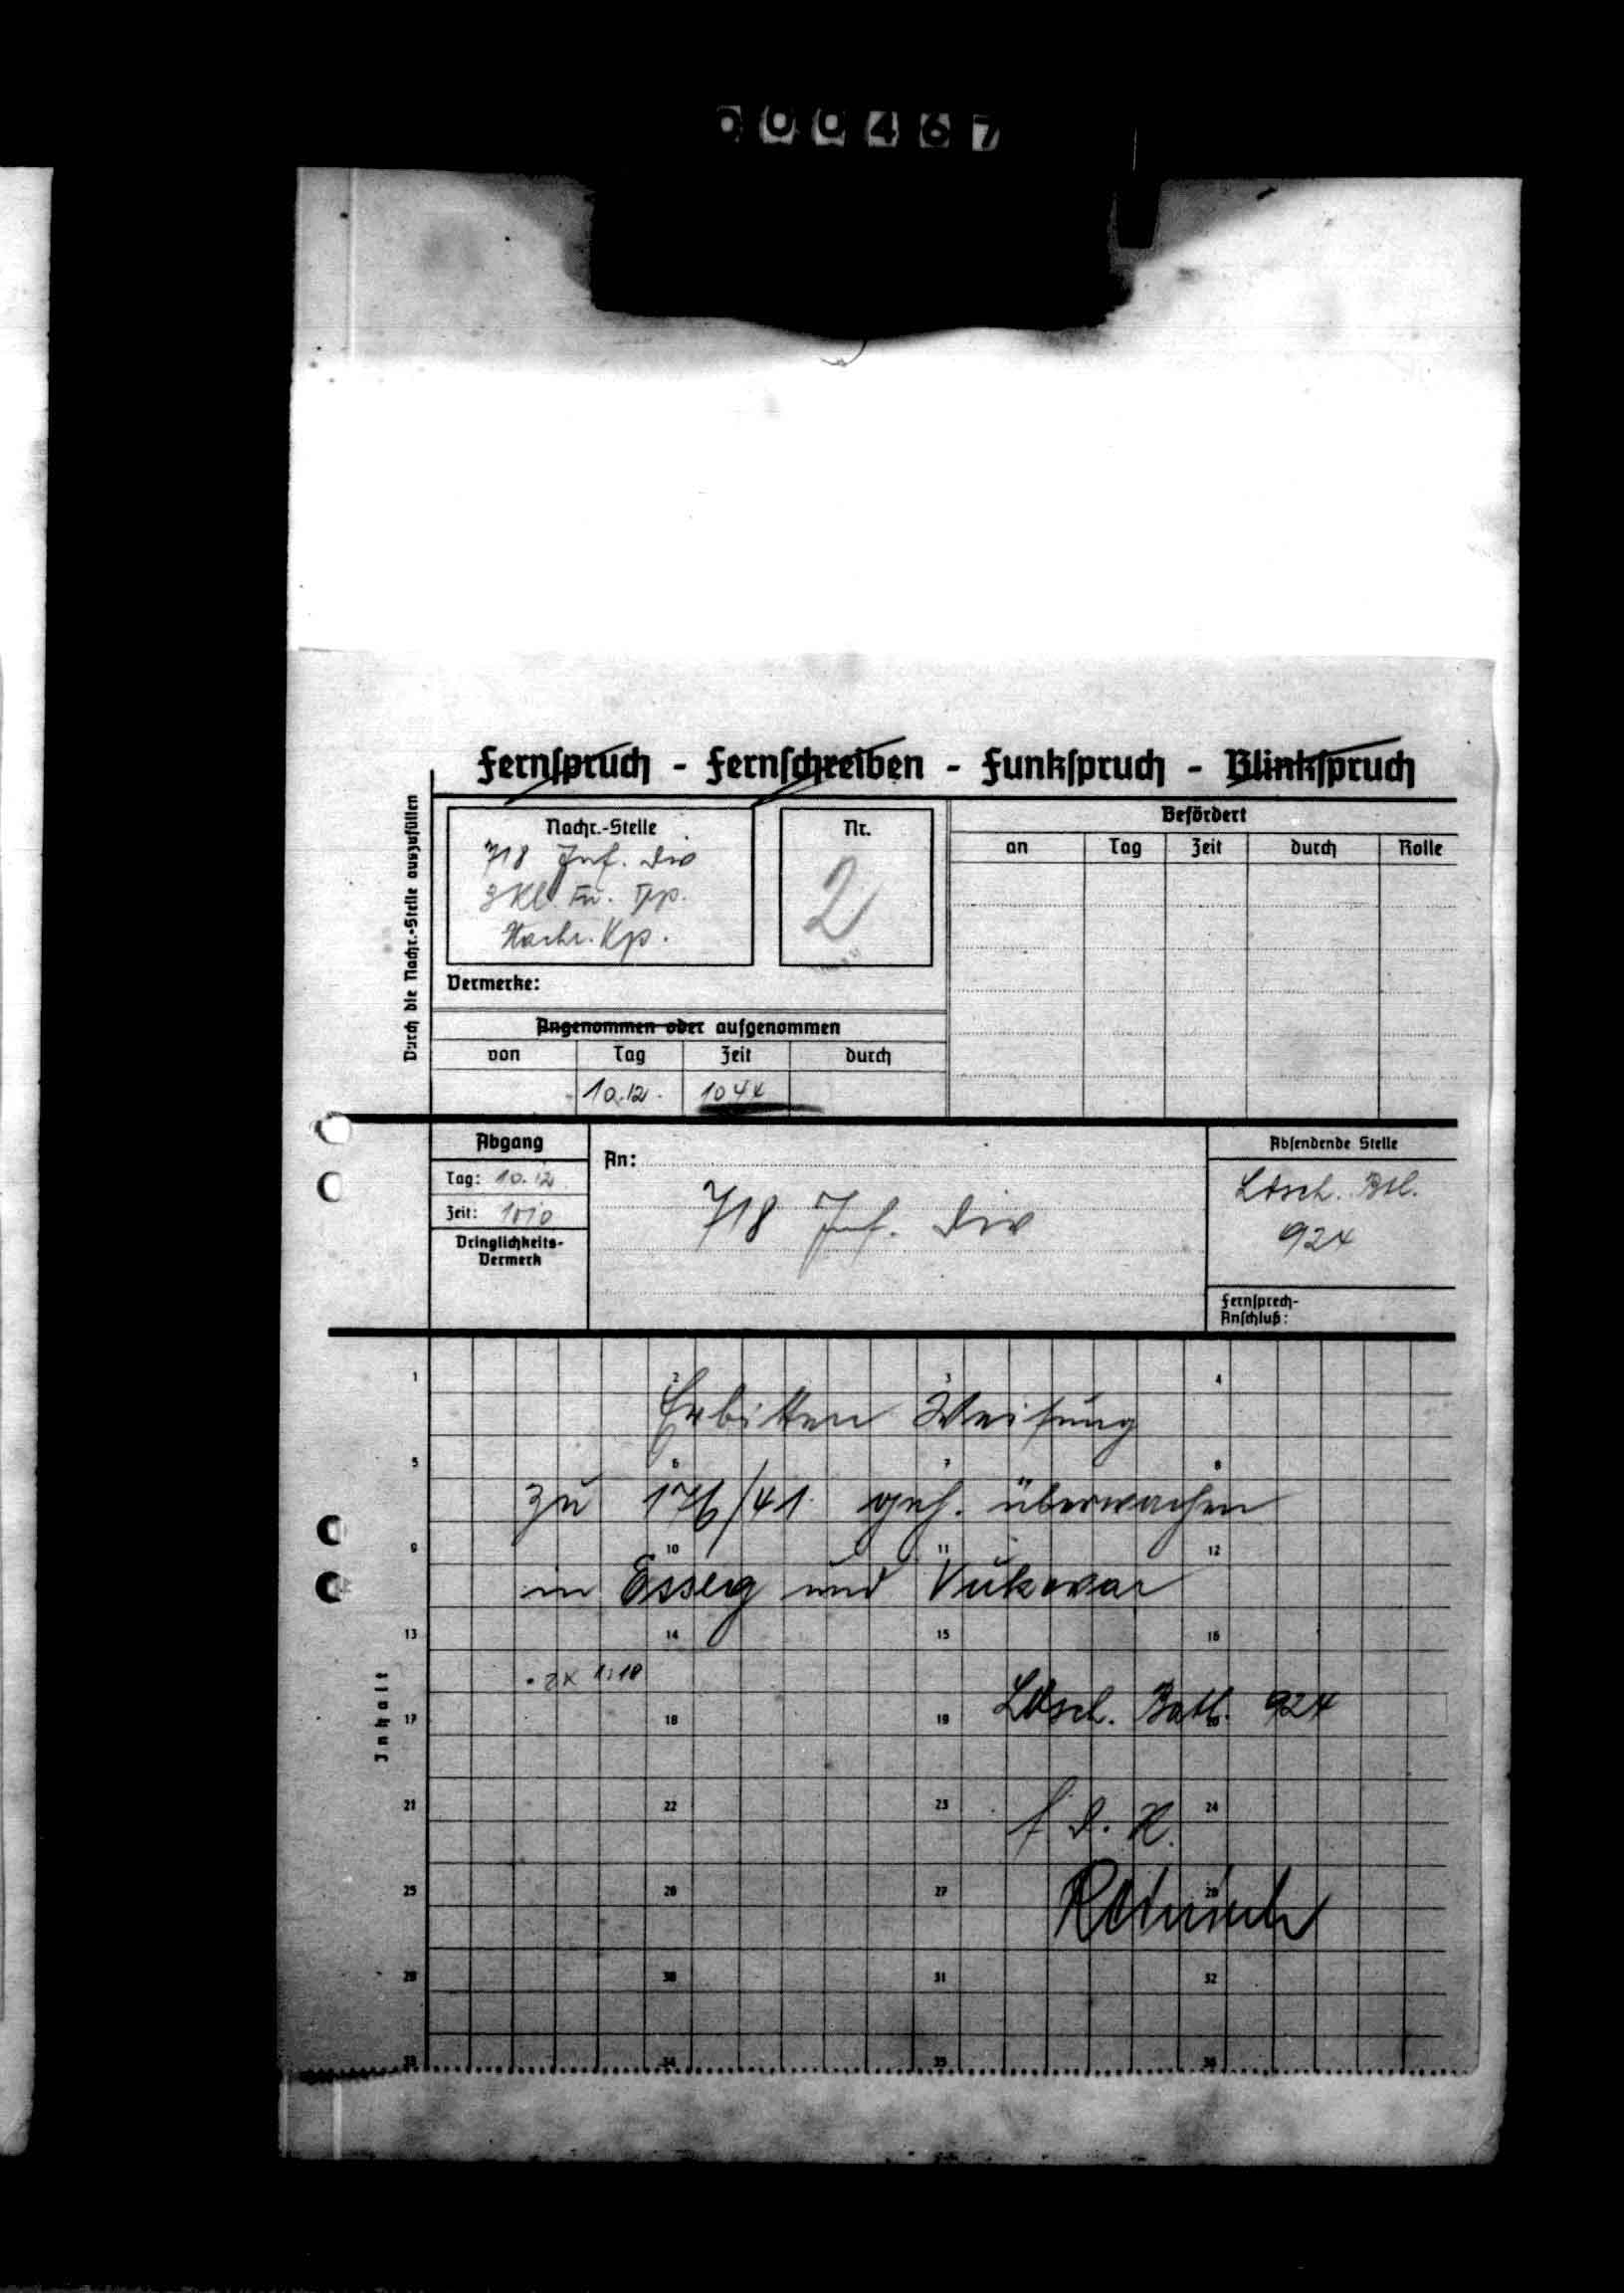 000467
Fernspruch - Fernschreiben - Funkspruch - Blinkspruch
Durch die Nachr.-Stelle auszufüllen
Nachr.-Stelle
718 Inf. Div
3 Kl. Fu. Trp.
Nachr. Kp.
Nr.
2
Befördert
an Tag Zeit durch Rolle
Vermerke:
Angenommen oder aufgenommen
von Tag Zeit durch
10.12. 1044
Abgang
Tag: 10.12
Zeit: 1010
Dringlichkeits-
Vermerk
An:
718 Inf. Div
Absendende Stelle
Ldsch. Btl.
924
Fernsprech-
Anschluß:
Inhalt
1 2 3 4
Erbitten Weisung
5 6 7 8
zu 176/41 geh. überwachen
9 10 11 12
in Esseg und Vukovar
13 14 15 16
Ldsch. Batl. 924
17 18 19 20
21 22 23 24
f. d. R.
25 26 27 28
29 30 31 32
33 34 35 36